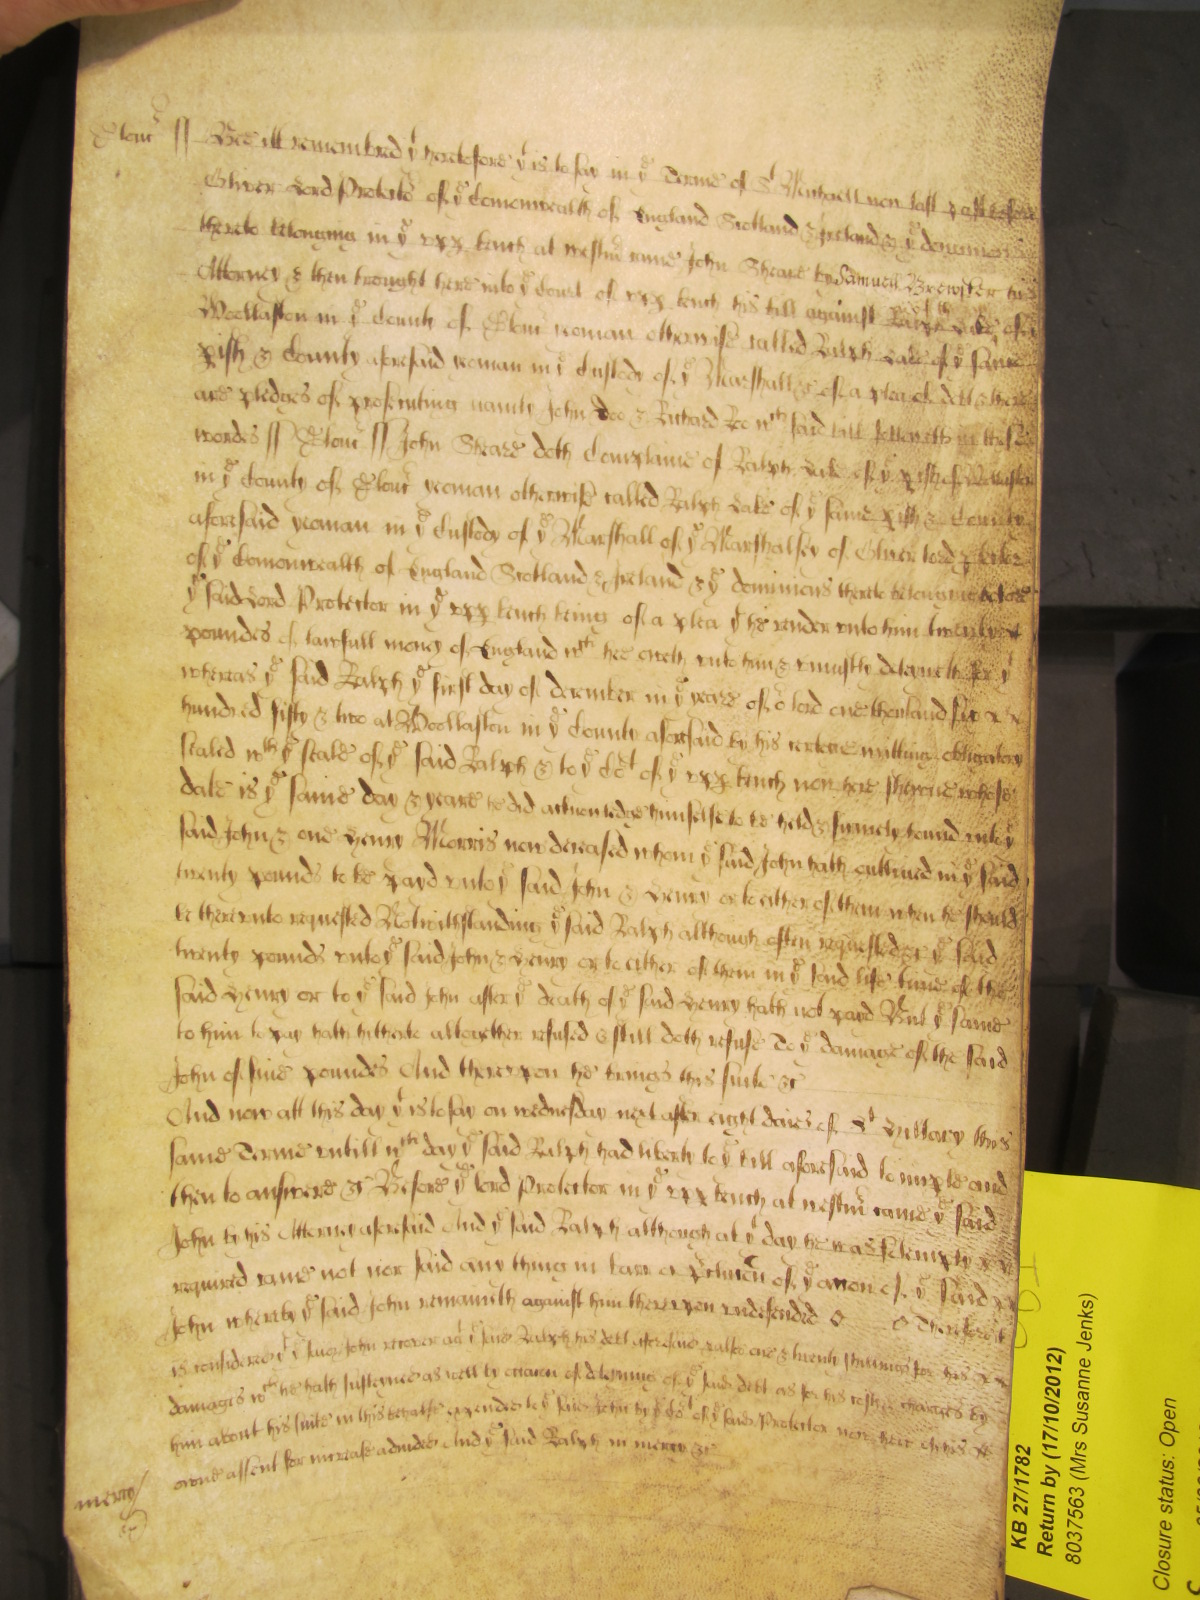 Glouc ss Bee itt remembred yt heretofore yt is to say in ye Terme of St Michaell now last past before
Oliver Lord Protector of ye Comonwealth of England Scotland & Ireland & ye dominions
thereto belonging in ye upp bench at westmr came John Steare by Samuel Brewster his
Attorney & then brought here into ye Court of upp bench his bill against Ralph Lake of
Woollaston in ye County of Glouc yeoman otherwise called Ralph Lake of ye same
pish & County aforesaid yeoman in ye Custody of ye Marshall &c of a plea of debt & there
are pledges of prosecuting namly John Doe & Richard Roe wch said bill followeth in these
wordes ss Glouc ss John Steare doth Complaine of Ralph Lake of ye pish of Wollaston
in ye County of Glouc yeoman otherwise called Ralph Lake of ye same pish & County
aforesaid yeoman in ye Custody of ye Marshall of ye Marshalsey of Oliver Lord ptector
of ye Comonwealth of England Scotland & Ireland & ye dominions thereto belonging before
ye said Lord Protector in ye upp bench being of a plea yt he render unto him twenty
poundes of lawfull money of England wch hee oweth unto him & uniustly deteyneth for yt
whereas ye said Ralph ye first day of december in ye yeare of or lord one thousand six
hundred fifty & two at Woollaston in ye County aforesaid by his certeine writting obligatory
sealed wth ye seale of ye said Ralph & to ye Cort of ye upp bench now here shewne whose
date is ye same day & yeare he did acknowledge himselfe to be held & firmely bound unto ye
said John & one Henry Morris now deceased whom ye said John hath outlived in ye said
twenty pounds to be payd unto ye said John & Henry or to either of them when he should
be thereunto requested Notwithstanding ye said Ralph although often requested &c ye said
twenty pounds unto ye said John & Henry or to either of them in ye said life time of the
said Henry or to ye said John after ye death of ye said Henry hath not payd But ye same
to him to pay hath hitherto altogether refused & still doth refuse To ye damage of the said
John of five poundes And thereupon he brings this suite &c
And now att this day yt is to say on wednesday next after eight daies of St Hillary this
same Terme untill wch day ye said Ralph had liberty to ye bill aforesaid to imple and
then to answere &c Before ye lord Protector in ye upp bench at westmr came ye said
John by his Attorney aforesaid And ye said Ralph although at yt day he was solemply
required came not nor said any thing in barr or of ye accon of ye said
John whereby ye said John remaineth against him thereupon undefended Therefore it
is considered yt ye said John recover agt ye said Ralph his debt aforesaid & alsoe one & twenty shillings for his
damages wch he hath susteyned as well by occacon of deteyning of ye said debt as for his costs & charges by
him about his suite in this behalfe expended to ye said John by ye Cort of ye said Protector now here of his
owne assent for increase adiudged And ye said Ralph in mercy &c
mercy
KB 27/1782
Return by (17/10/2012)
8037563 (Mrs Susanne Jenks)
Closure status: Open